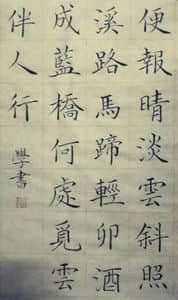 便報晴淡雲斜照
溪路馬蹄輕卯酒
成藍橋何處覓雲
伴人行
學書